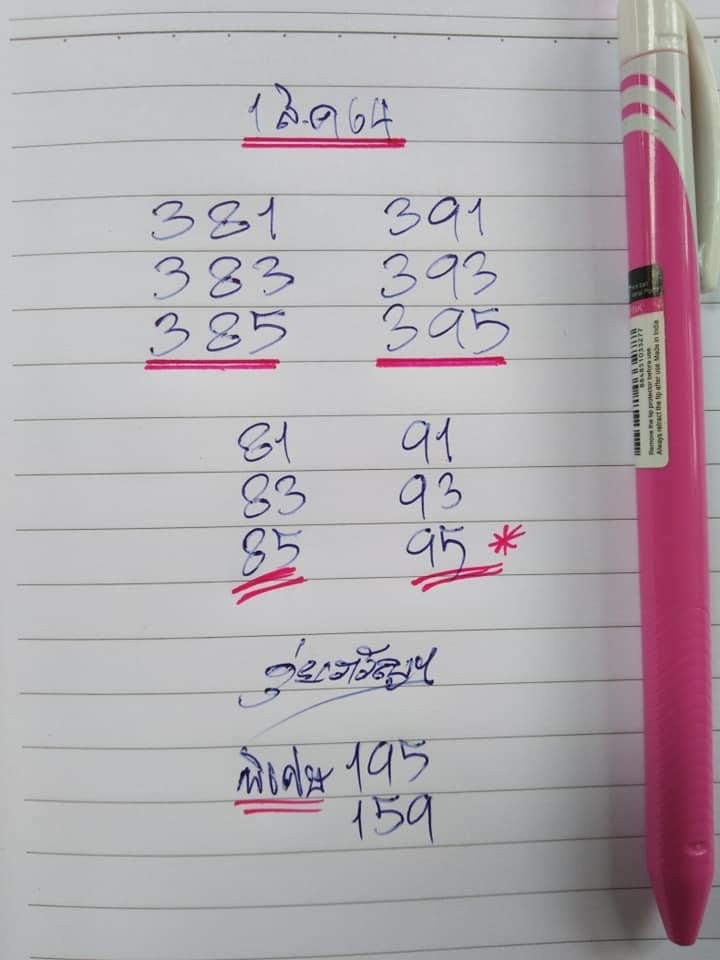 1 ส.ค 64
381 391
383 393
385 395
81 91
83 93
85 95 *
พิเศษ 195
159
8 848310 33277
Remove the tip protector before use.
Always retract the tip after use. Made in India